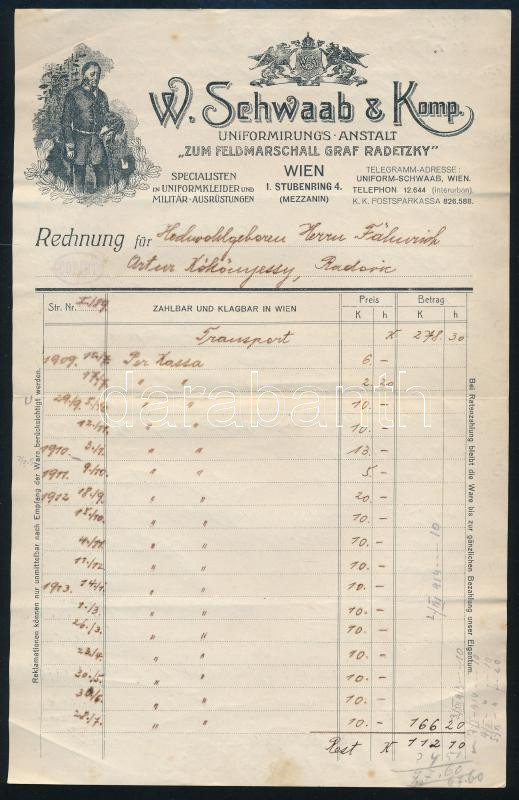 W. Schwaab & Komp.
UNIFORMIRUNGS-ANSTALT
„ZUM FELDMARSCHALL GRAF RADETZKY"
SPECIALISTEN
IN UNIFORMKLEIDER UND
MILITÄR-AUSRÜSTUNGEN
WIEN
I. STUBENRING 4.
(MEZZANIN)
TELEGRAMM-ADRESSE:
UNIFORM-SCHWAAB, WIEN.
TELEPHON 12.644 (interurban).
K. K. POSTSPARKASSA 826.588.
Rechnung für Hochwohlgeboren Herrn Fähnrich
Artur
Str. Nr. ZAHLBAR UND KLAGBAR IN WIEN Preis Betrag
K h K h
Transport K 278.30
1909. Per Kassa 6.–
17/7. " " 2.20
" " 10.–
12./11. " " 10.–
1910. " " 13.–
1911. 9./10. " " 5.–
1912 18./9. " " 20.–
15./10. " " 10.–
" " 10.–
" " 10.–
1913. " " 10.–
1./3. " " 10.–
26./3. " " 10.–
23./4. " " 10.–
30./5. " " 10.–
30./6. " " 10.–
28./7. " " 10.– 166 20
Rest K 112 10
Reklamationen können nur unmittelbar nach Empfang der Ware berücksichtigt werden.
Bei Ratenzahlung bleibt die Ware bis zur gänzlichen Bezahlung unser Eigentum.
darabanth